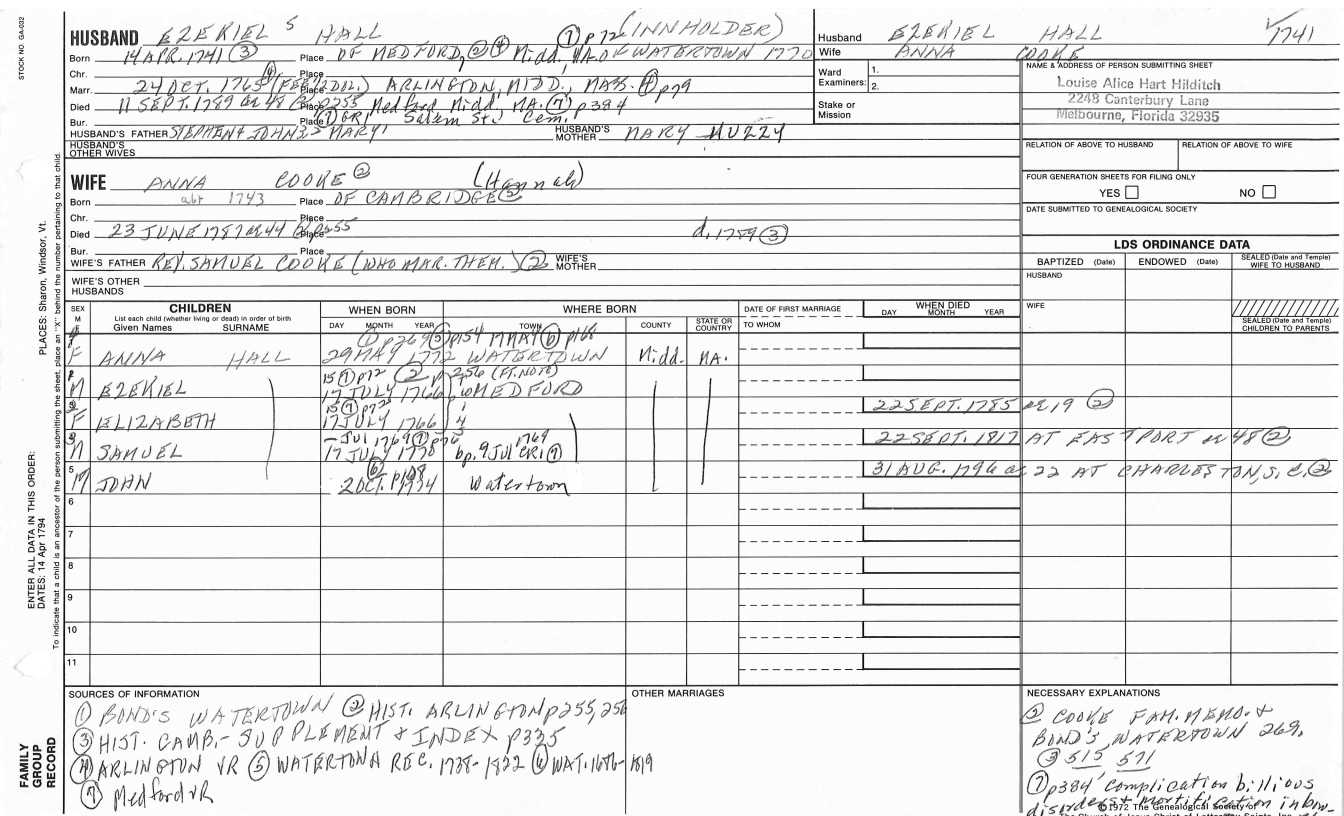 STOCK NO. GA-032
HUSBAND EZEKIEL 5 HALL ⑦ p72 (INNHOLDER)
Born 14 APR. 1741 ③ Place OF MEDFORD, ② ④ Midd. MA. OF WATERTOWN 1770
Chr. Place
Marr. 24 OCT. 1765 Place ARLINGTON, MIDD., MASS. ④ p79
Died 11 SEPT. 1789 ae 48 Place p255 Medford Midd. MA. ⑦ p384
Bur. Place GR1 Salem St. Cem.
HUSBAND'S FATHER STEPHEN4 JOHN3 2 MARY1 HUSBAND'S MOTHER MARY HUZZY
HUSBAND'S OTHER WIVES
Husband EZEKIEL HALL 1741
Wife ANNA COOKE
Ward Examiners: 1.
2.
Stake or Mission
NAME & ADDRESS OF PERSON SUBMITTING SHEET
Louise Alice Hart Hilditch
2248 Canterbury Lane
Melbourne, Florida 32935
RELATION OF ABOVE TO HUSBAND RELATION OF ABOVE TO WIFE
FOUR GENERATION SHEETS FOR FILING ONLY
YES NO
DATE SUBMITTED TO GENEALOGICAL SOCIETY
WIFE ANNA COOKE ② (Hannah)
Born abt 1743 Place OF CAMBRIDGE ②
Chr. Place
Died 23 JUNE 1787 ae 44 Place p255 d. 1789 ③
Bur. Place
WIFE'S FATHER REV. SAMUEL COOKE (WHO MAR. THEM.) ② WIFE'S MOTHER
WIFE'S OTHER HUSBANDS
LDS ORDINANCE DATA
BAPTIZED (Date) ENDOWED (Date) SEALED (Date and Temple) WIFE TO HUSBAND
HUSBAND
WIFE
SEALED (Date and Temple) CHILDREN TO PARENTS
SEX M F CHILDREN WHEN BORN WHERE BORN DATE OF FIRST MARRIAGE WHEN DIED
List each child (whether living or dead) in order of birth
Given Names SURNAME DAY MONTH YEAR TOWN COUNTY STATE OR COUNTRY TO WHOM DAY MONTH YEAR
① p269 ⑤ p154 MMAY ⑥ p168
F ANNA HALL 29 MAY 1772 WATERTOWN Midd. MA.
15 ⑦ p72 ② p 256 (FT. NOTE)
M EZEKIEL 17 JULY 1766 MEDFORD
15 ⑦ p72
F ELIZABETH 17 JULY 1766 22 SEPT. 1785 ae 19 ②
- Jul 1769 ⑦ p75 1769
M SAMUEL 17 JULY 1770 bp. 9 Jul CR1 ⑦ 22 SEPT. 1817 AT EASTPORT ae 48 ②
⑥ p188
5 M JOHN 2 OCT. 1774 Watertown 31 AUG. 1796 ae 22 AT CHARLESTON, S.C. ②
6
7
8
9
10
11
SOURCES OF INFORMATION
① BOND'S WATERTOWN ② HIST. ARLINGTON p255, 256
③ HIST. CAMB. - SUPPLEMENT & INDEX p335
④ ARLINGTON VR ⑤ WATERTOWN REC. 1728-1822 ⑥ WAT. 1686-1819
⑦ Medford VR
OTHER MARRIAGES
NECESSARY EXPLANATIONS
② COOKE FAM. MEMO. &
BOND'S WATERTOWN 269,
③ 515 571
⑦ p384 complication billious
disorders & mortification in bow-
©1972 The Genealogical Society of
The Church of Jesus Christ of Latter-day Saints, Inc.
PLACES: Sharon, Windsor, Vt.
ENTER ALL DATA IN THIS ORDER:
DATES: 14 Apr 1794
To indicate that a child is an ancestor of the person submitting the sheet, place an "X" behind the number pertaining to that child.
FAMILY GROUP RECORD